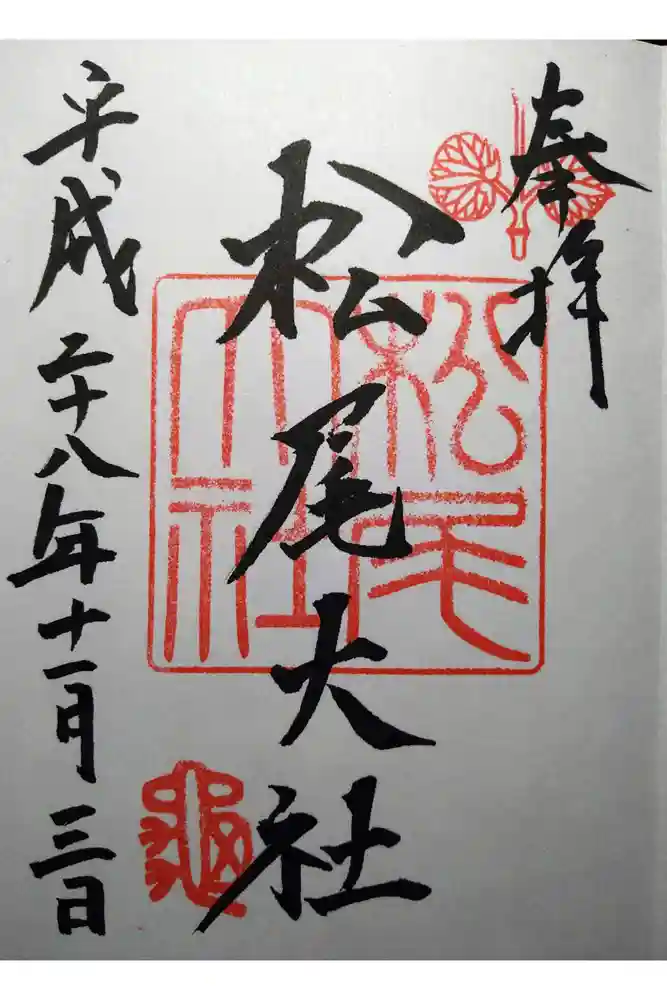 奉拝
松尾大社
松尾大社
平成二十八年十一月三日